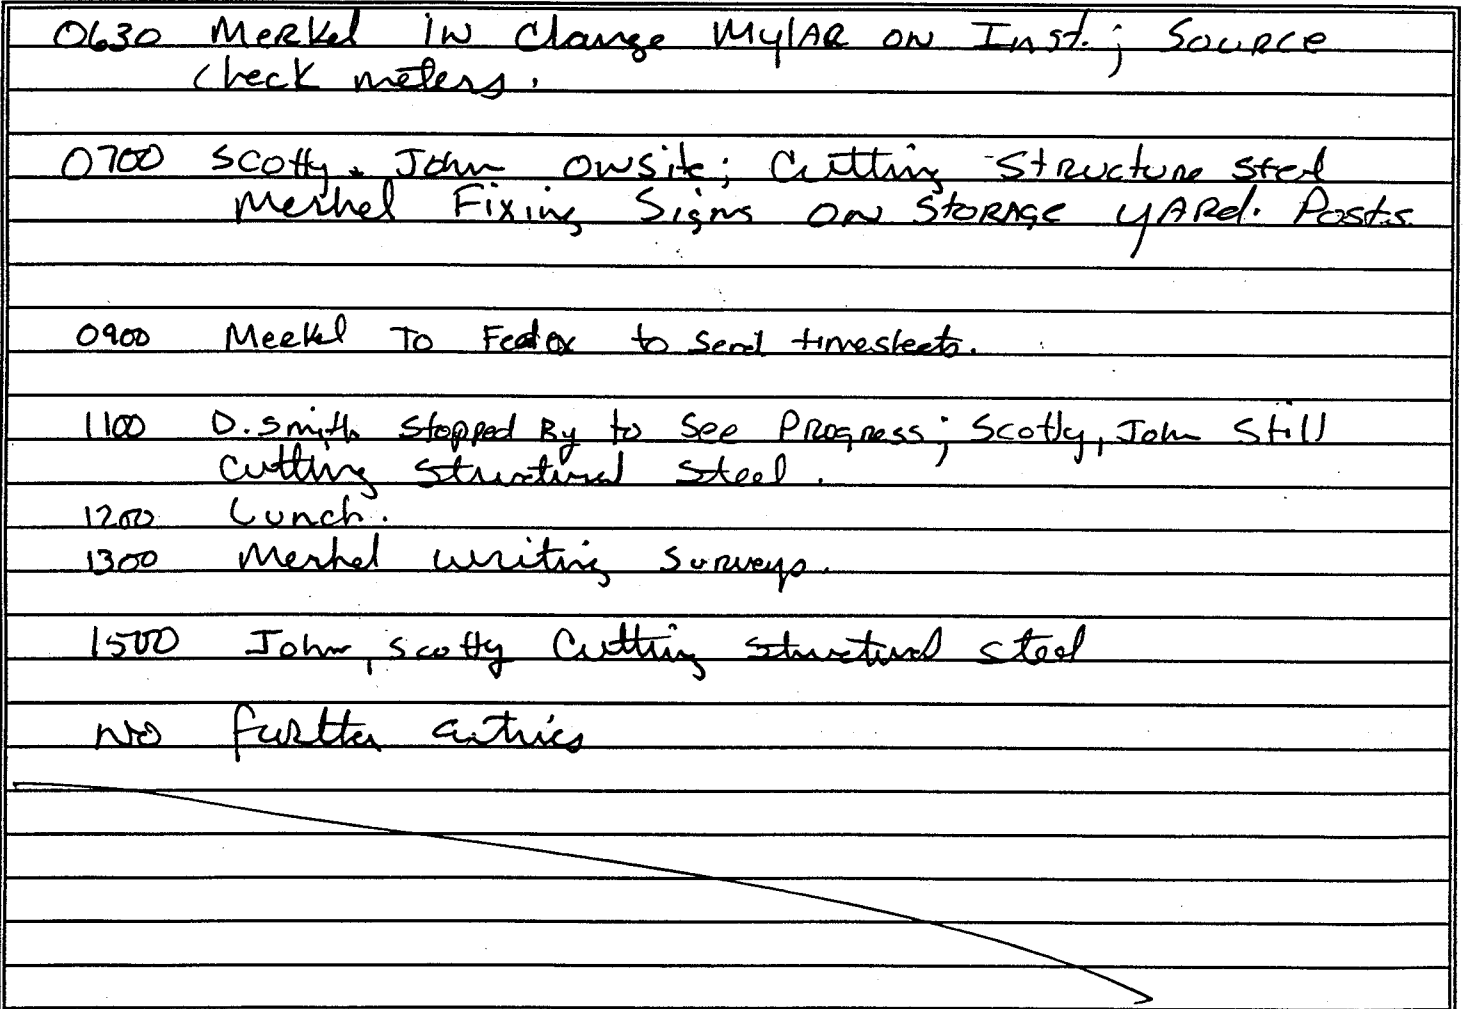 0630 Merkel in Change Mylar on Inst.; Source
check meters.
0700 Scotty, John onsite; Cutting Structure Steel
Merkel Fixing Signs on Storage yard. Posts
0900 Merkel To Fedex to send timesheets.
1100 D. Smith Stopped By to See Progress; Scotty, John Still
Cutting Structural Steel.
1200 Lunch.
1300 Merkel writing Surveys.
1500 John, Scotty Cutting Structural Steel
No further entries